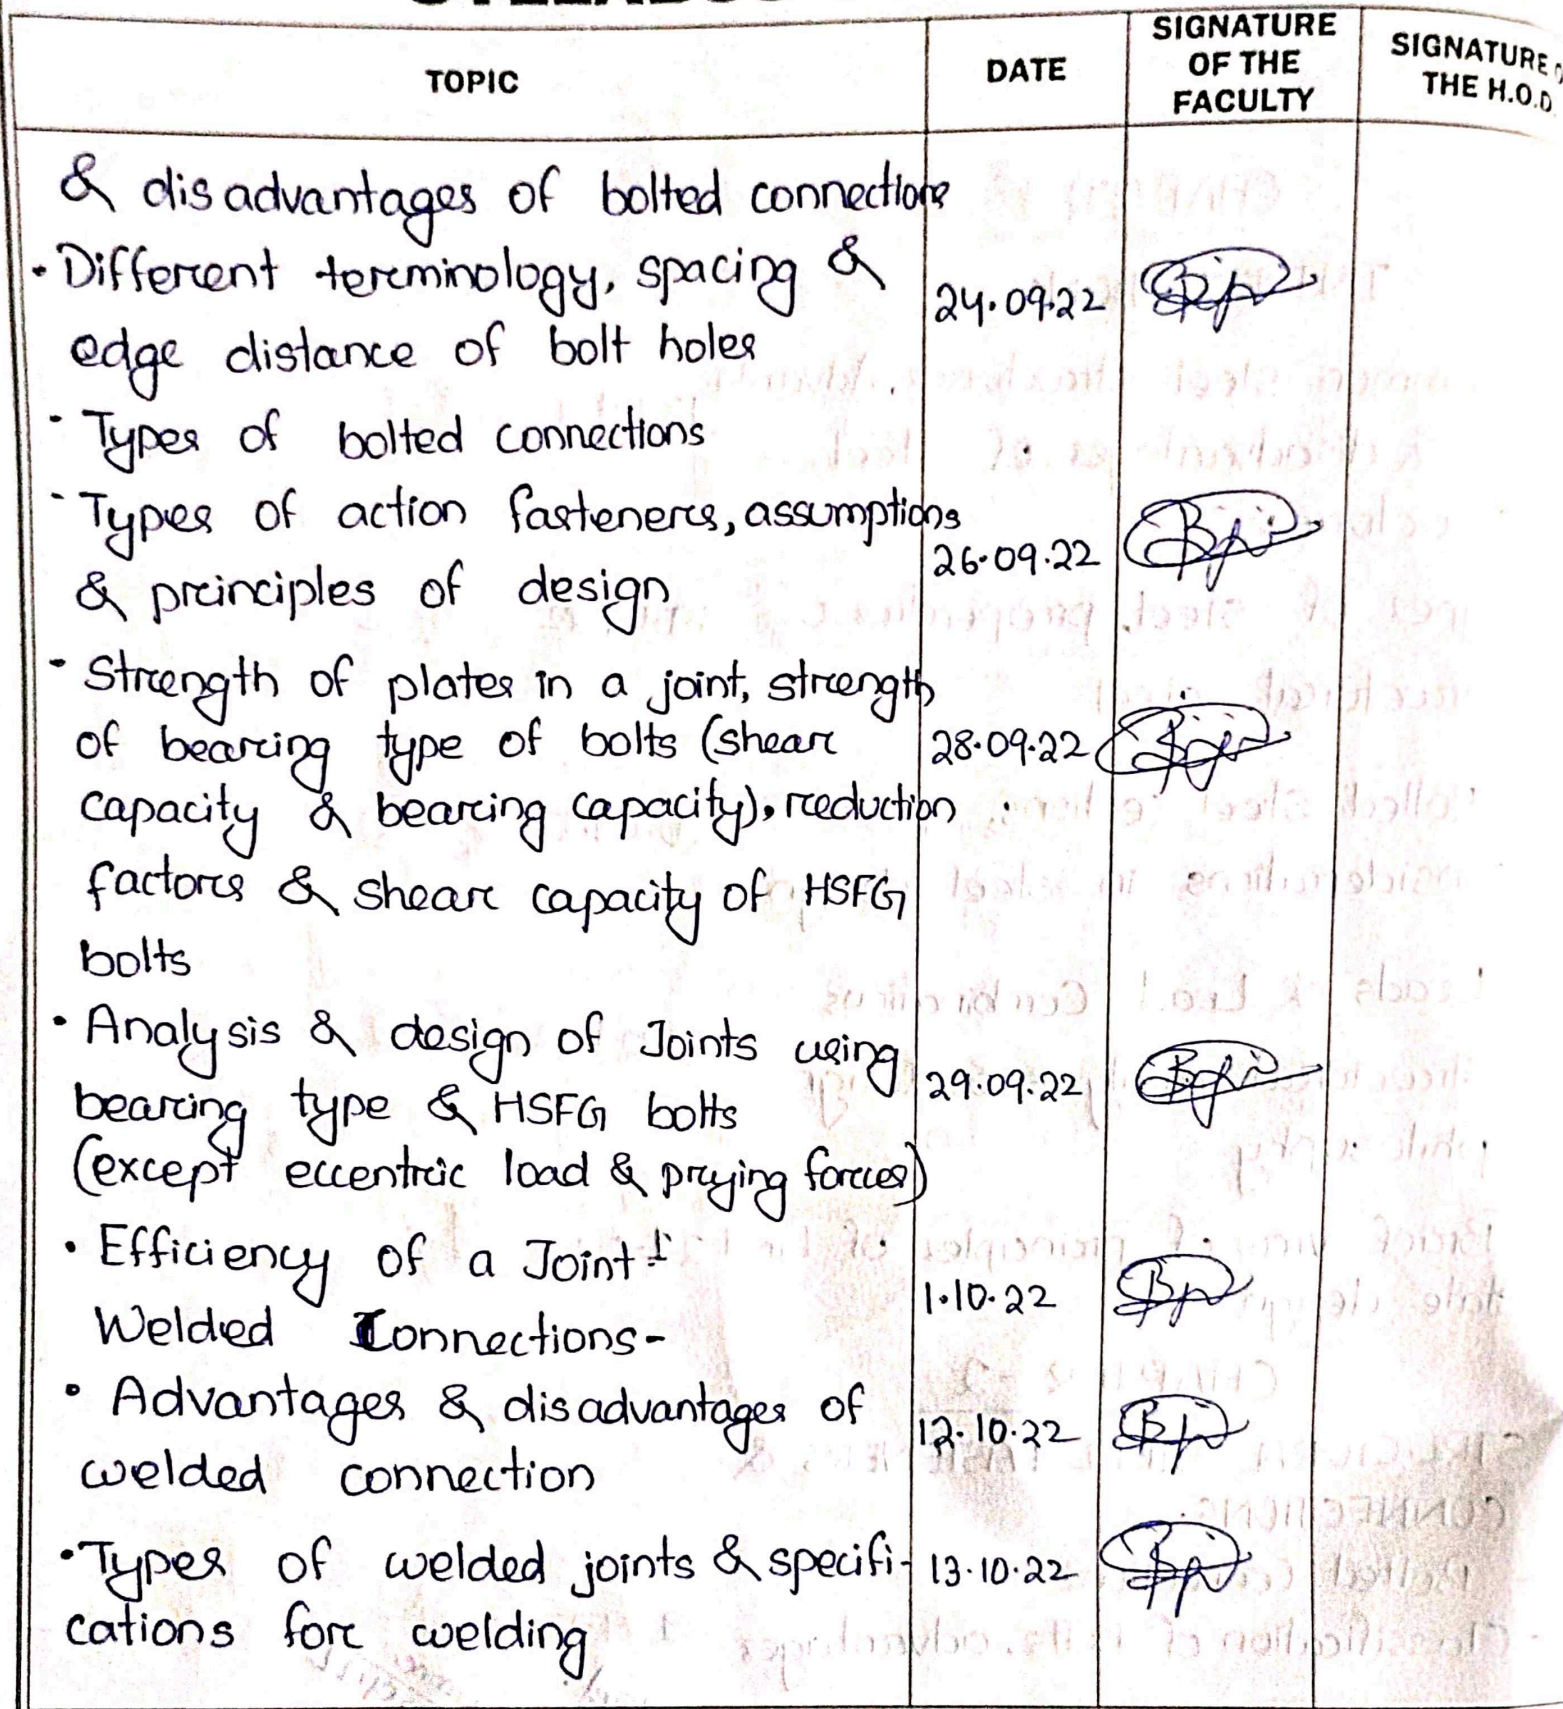 TOPIC
DATE
SIGNATURE
OF THE
FACULTY
SIGNATURE
THE H.O.D.
& disadvantages of bolted connections
• Different terminology, spacing &
edge distance of bolt holes
24.09.22
- Types of bolted connections
- Types of action fasteners, assumptions
& principles of design
26.09.22
- Strength of plates in a joint, strength
of bearing type of bolts (shear
28.09.22
capacity & bearing capacity), reduction
factors & shear capacity of HSFG
bolts
• Analysis & design of Joints using
bearing type & HSFG bolts
29.09.22
(except eccentric load & prying forces)
• Efficiency of a Joint
Welded Connections-
1.10.22
• Advantages & disadvantages of
welded connection
12.10.22
• Types of welded joints & specifi-
cations for welding
13.10.22